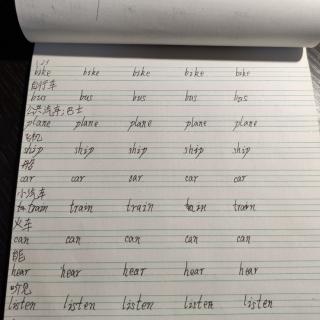 bike bike bike bike bike
自行车
bus bus bus bus bus
公共汽车;巴士
plane plane plane plane plane
飞机
ship ship ship ship ship
船
car car car car car
小汽车
train train train train
火车
can can can can can
能
hear hear hear hear hear
听见
listen listen listen listen listen